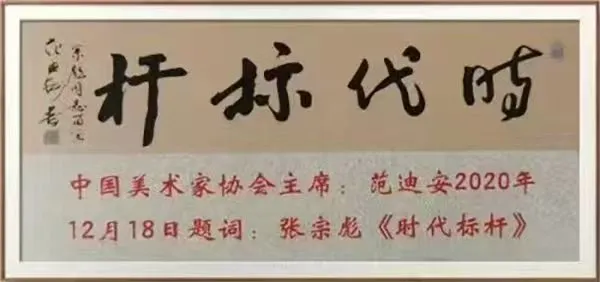 时代标杆
宗彪同志
范迪安书
中国美术家协会主席：范迪安2020年
12月18日题词：张宗彪《时代标杆》